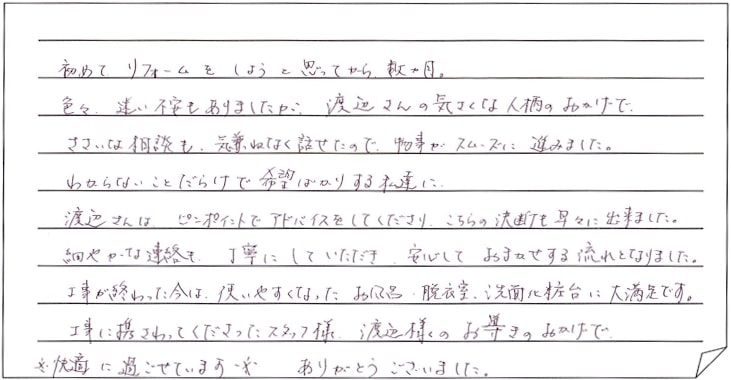 初めて リフォームを しようと 思ってから 数ヶ月。
色々、迷い不安もありましたが、渡辺さんの気さくな人柄のおかげで、
ささいな相談も、気兼ねなく話せたので、物事がスムーズに 進みました。
わからないことだらけで希望ばかりする私達に、
渡辺さんは ピンポイントで アドバイスをしてくださり、こちらの決断も早々に出来ました。
細やかな連絡も、丁寧に していただき、安心して おまかせする 流れとなりました。
工事が終わった今は、使いやすくなった お風呂・脱衣室、洗面化粧台に 大満足です。
工事に携さわってくださった スタッフ様、渡辺様の お導きの おかげで、
※快適に過ごせています※ ありがとう ございました。